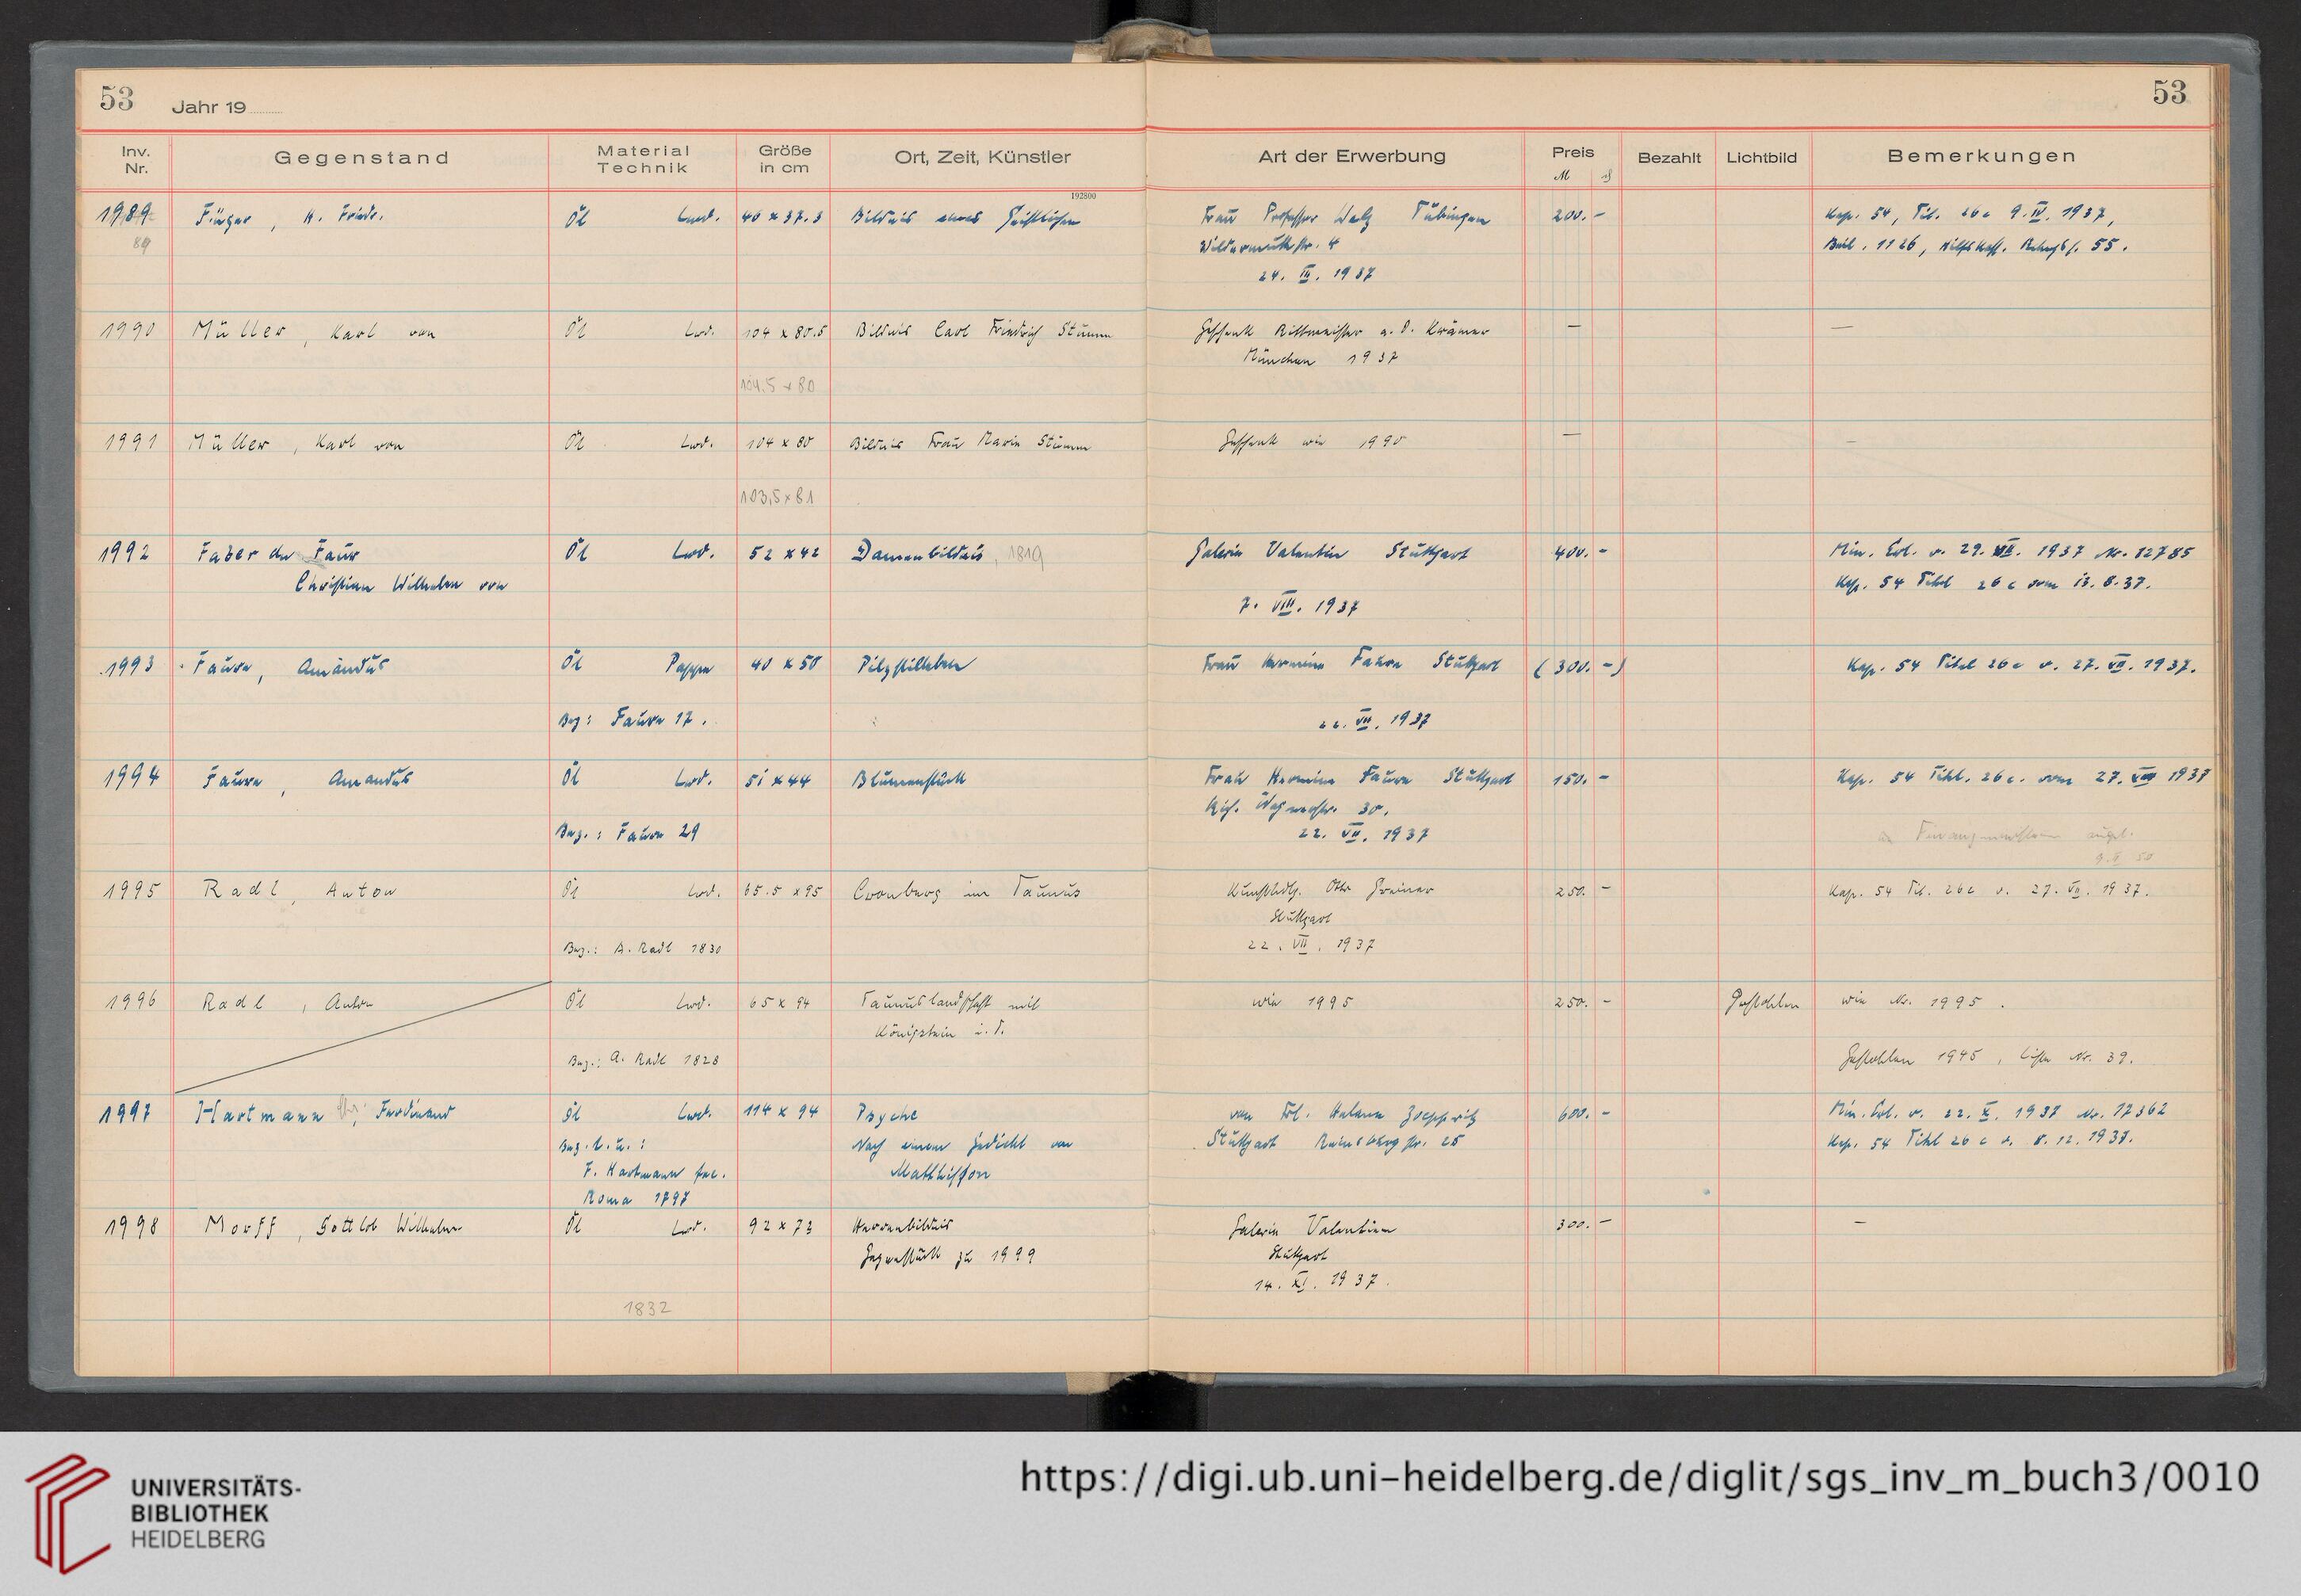 53 Jahr 19 53
Inv. Nr. Gegenstand Material Technik Größe in cm Ort, Zeit, Künstler Art der Erwerbung Preis M ₰ Bezahlt Lichtbild Bemerkungen
192800
1989 Füger, H. Friedr. Öl Lwd. 46 x 37.3 Bildnis eines Geistlichen Frau Professor Walz Tübingen 200.- Kap. 54, Tit. 26c 9. IV. 1937,
89 Wildermuthstr. 4 Beil. 1126, 55.
24. III. 1937
1990 Müller, Karl von Öl Lwd. 104 x 80.5 Bildnis Carl Friedrich Stumm Geschenk Rittmeister a. D. Krämer — —
München 1937
104.5 x 80
1991 Müller, Karl von Öl Lwd. 104 x 80 Bildnis Frau Marie Stumm Geschenk wie 1990 — —
103,5 x 81
1992 Faber du Faur Öl Lwd. 52 x 42 Damenbildnis, 1819 Galerie Valentin Stuttgart 400.- Min. Erl. v. 29. VII. 1937 Nr. 12785
Christian Wilhelm von Kap. 54 Titel 26 c vom 13. 8. 37.
7. VIII. 1937
1993 Faure, Amandus Öl Pappe 40 x 50 Pilzstilleben Frau Hermine Faure Stuttgart (300.-) Kap. 54 Titel 26c v. 27. VII. 1937.
Bez: Faure 17. 22. VII. 1937
1994 Faure, Amandus Öl Lwd. 51 x 44 Blumenstück Frau Hermine Faure Stuttgart 150.- Kap. 54 Titel. 26c. vom 27. VII 1937
30.
Bez.: Faure 29 22. VII. 1937
1995 Radl, Anton Öl Lwd. 65.5 x 95 Cronberg im Taunus Kunsthdlg. Otto Greiner 250.- Kap. 54 Tit. 26c v. 27. VII. 1937.
Stuttgart
Bez.: A. Radl 1830 22. VII. 1937
1996 Radl, Anton Öl Lwd. 65 x 94 Taunuslandschaft mit wie 1995 250.- Gestohlen wie Nr. 1995.
Königstein i. T.
Bez.: A. Radl 1828 Gestohlen 1945, Liste Nr. 39.
1997 Hartmann, Ferdinand Öl Lwd. 114 x 94 Psyche von Frl. Helene Zoeppritz 600.- Min. Erl. v. 22. X. 1937 Nr. 17362
Bez. l. u.: Nach einem Gedicht von Stuttgart Reinsburgstr. 25 Kap. 54 Titel 26 c v. 8. 12. 1937.
F. Hartmann fec. Matthisson
Roma 1797
1998 Morff, Gottlob Wilhelm Öl Lwd. 92 x 73 Herrenbildnis Galerie Valentien 300.- —
Gegenstück zu 1999 Stuttgart
14. XI. 1937.
1832
UNIVERSITÄTS-
BIBLIOTHEK
HEIDELBERG
https://digi.ub.uni-heidelberg.de/diglit/sgs_inv_m_buch3/0010